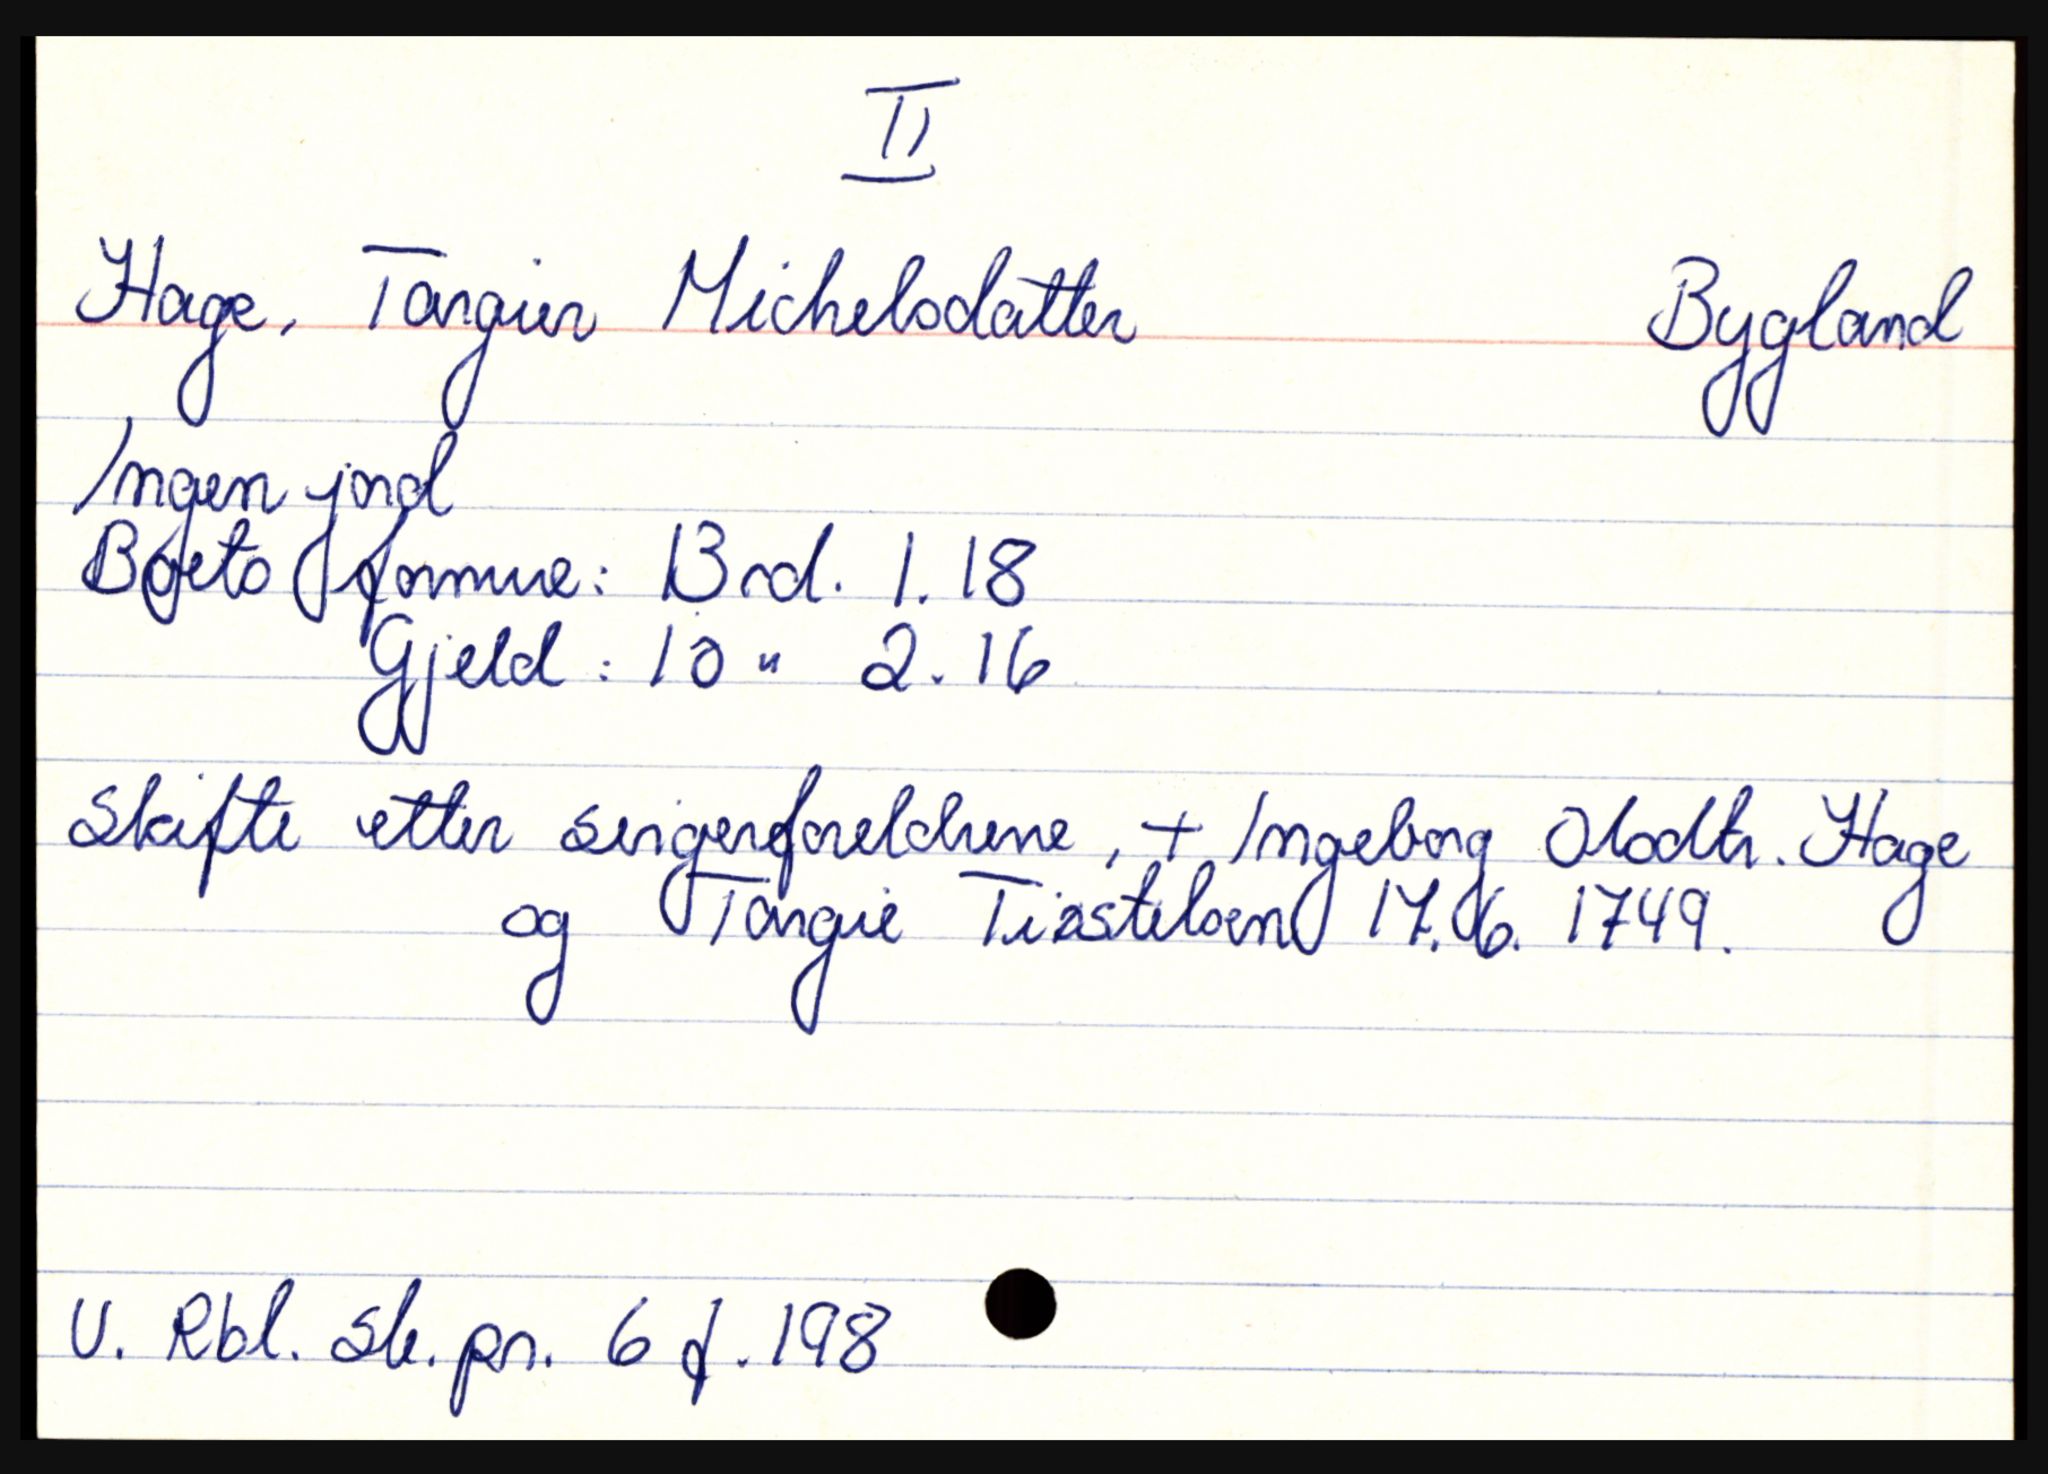 II
Hage, Targier Michelsdatter Bygland
Ingen jord
Boets formue: 13 rd. 1.18
Gjeld: 10 " 2.16
Skifte etter svigerforeldrene, + Ingeborg Olsdtr. Hage
og Targie 17.6.1749.
V. Rbl. sk.pr. 6 f. 198